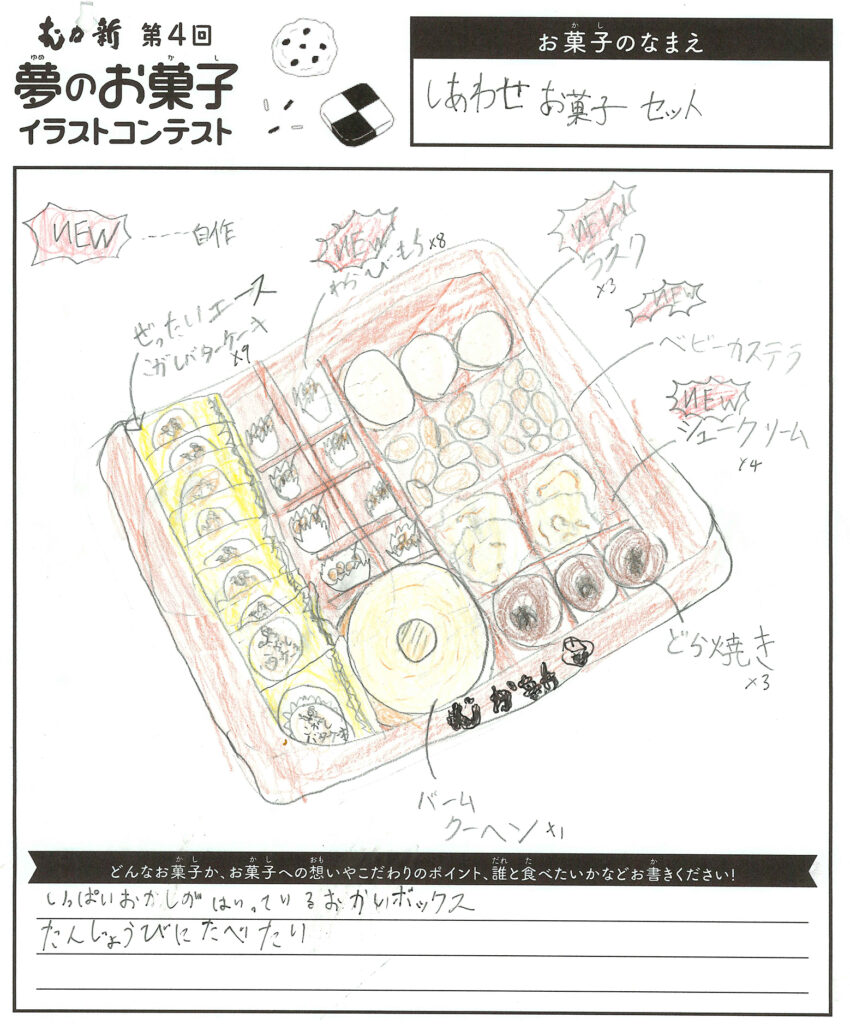 むか新 第4回
ゆめ かし
夢のお菓子
イラストコンテスト
かし
お菓子のなまえ
しあわせ お菓子 セット
NEW ……自作
NEW
わらびもち×8
NEW
ラスク
×3
ぜったいエース
こがしバターケーキ
×9
NEW
ベビーカステラ
NEW
シュークリーム
×4
どら焼き
×3
むか新
こがし
バターケーキ
バーム
クーヘン×1
かし かし おも だれ た か
どんなお菓子か、お菓子への想いやこだわりのポイント、誰と食べたいかなどお書きください!
いっぱいおかしがはいっているおかしボックス
たんじょうびにたべたい